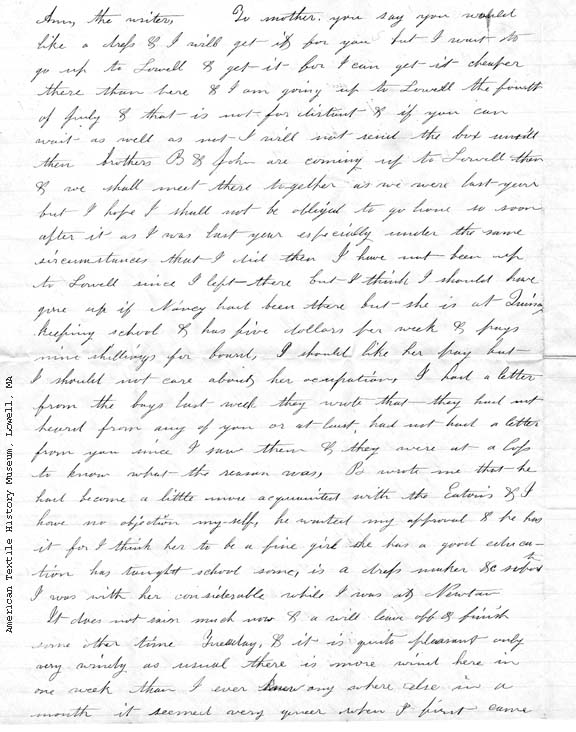 Ann, the writer, To mother. you say you would
like a dress & I will get it for you but I want to
go up to Lowell & get it for I can get it cheaper
there than here & I am going up to Lowell the fourth
of july & that is not far distant & if you can
wait as well as not I will not send the box untill
then brothers B & John are coming up to Lowell then
& we shall meet there together as we were last year
but I hope I shall not be obliged to go home so soon
after it as I was last year especially under the same
circumstances that I did then I have not been up
to Lowell since I left there but I think I should have
gone up if Nancy had been there but she is at Quincy
keeping school & has five dollars per week & pays
nine shillings for board, I should like her pay but
I should not care about her occupation, I had a letter
from the boys last week they wrote that they had not
heard from any of you or at least had not had a letter
from you since I saw them & they were at a loss
to know what the reason was, B wrote me that he
had become a little more acquainted with the & I
have no objection my self, he wanted my approval & he has
it for I think her to be a fine girl she has a good educa-
tion has taught school some, is a dress maker &c
I was with her considerable while I was at Newton
It does not rain much now & a will leave off & finish
some other time Tuesday, & it is quite pleasant only
very windy as usual there is more wind here in
one week than I ever knew any where else in a
month it seemed very queer when I first came
American Textile History Museum, Lowell, MA